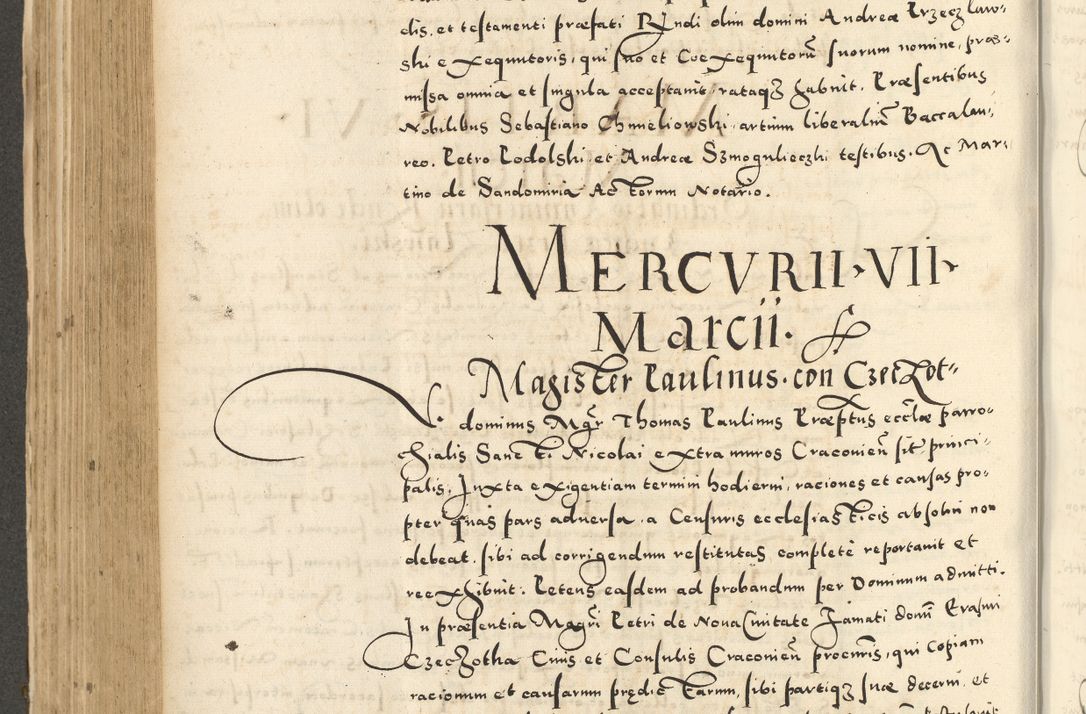 dis, et testamenti præfati Rndi olim domini Andreæ Krzeczlaw-
ski exequutoris, qui suo et Coexequutorũ suorum nomine, præ-
missa omnia et singula acceptavit, rataqз habuit. Præsentibus
Nobilibus Sebastiano Chmeliowski, artium liberaliũ Baccalau-
reo. Petro Podolski et Andreæ Szmogulieczki testibus. Ac Mar-
tino de Sandomiria Actorum Notario.
MERCVRII · VII ·
Marcii.
Magister Paulinus. con Czeczot-
V. dominus Mgr Thomas Paulinus Præptus ecclæ parro-
chialis Sancti Nicolai extra muros Craconien̄ sit princi-
palis, Juxta exigentiam termini hodierni, raciones et causas pro-
pter quas pars adversa, a Censuris ecclesiasticis absolvi non
debeat, sibi ad corrigendum restitutas complete reportavit et
reexhibuit. Petens easdem ad probandum per Dominum admitti.
In præsentia Magri Petri de Nova Civitate Famati domĩ Erasmi
Czeczotha Civis et Consulis Craconien̄ procuris, qui copiam
racionum et causarum prędictarum, sibi partiqз suæ decerni, et